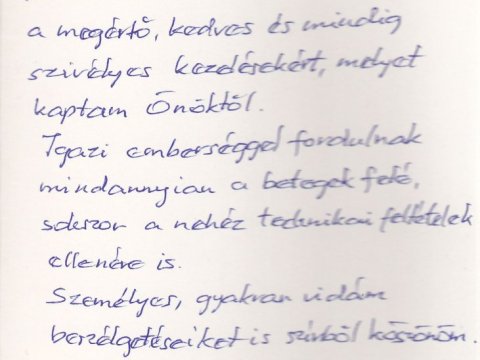 a megértő, kedves és mindig
szivélyes kezelésekért, melyet
kaptam Önöktől.
Igazi emberséggel fordulnak
mindannyian a betegek felé,
sokszor a nehéz technikai feltételek
ellenére is.
Személyes, gyakran vidám
beszélgetéseiket is szívből köszönöm.